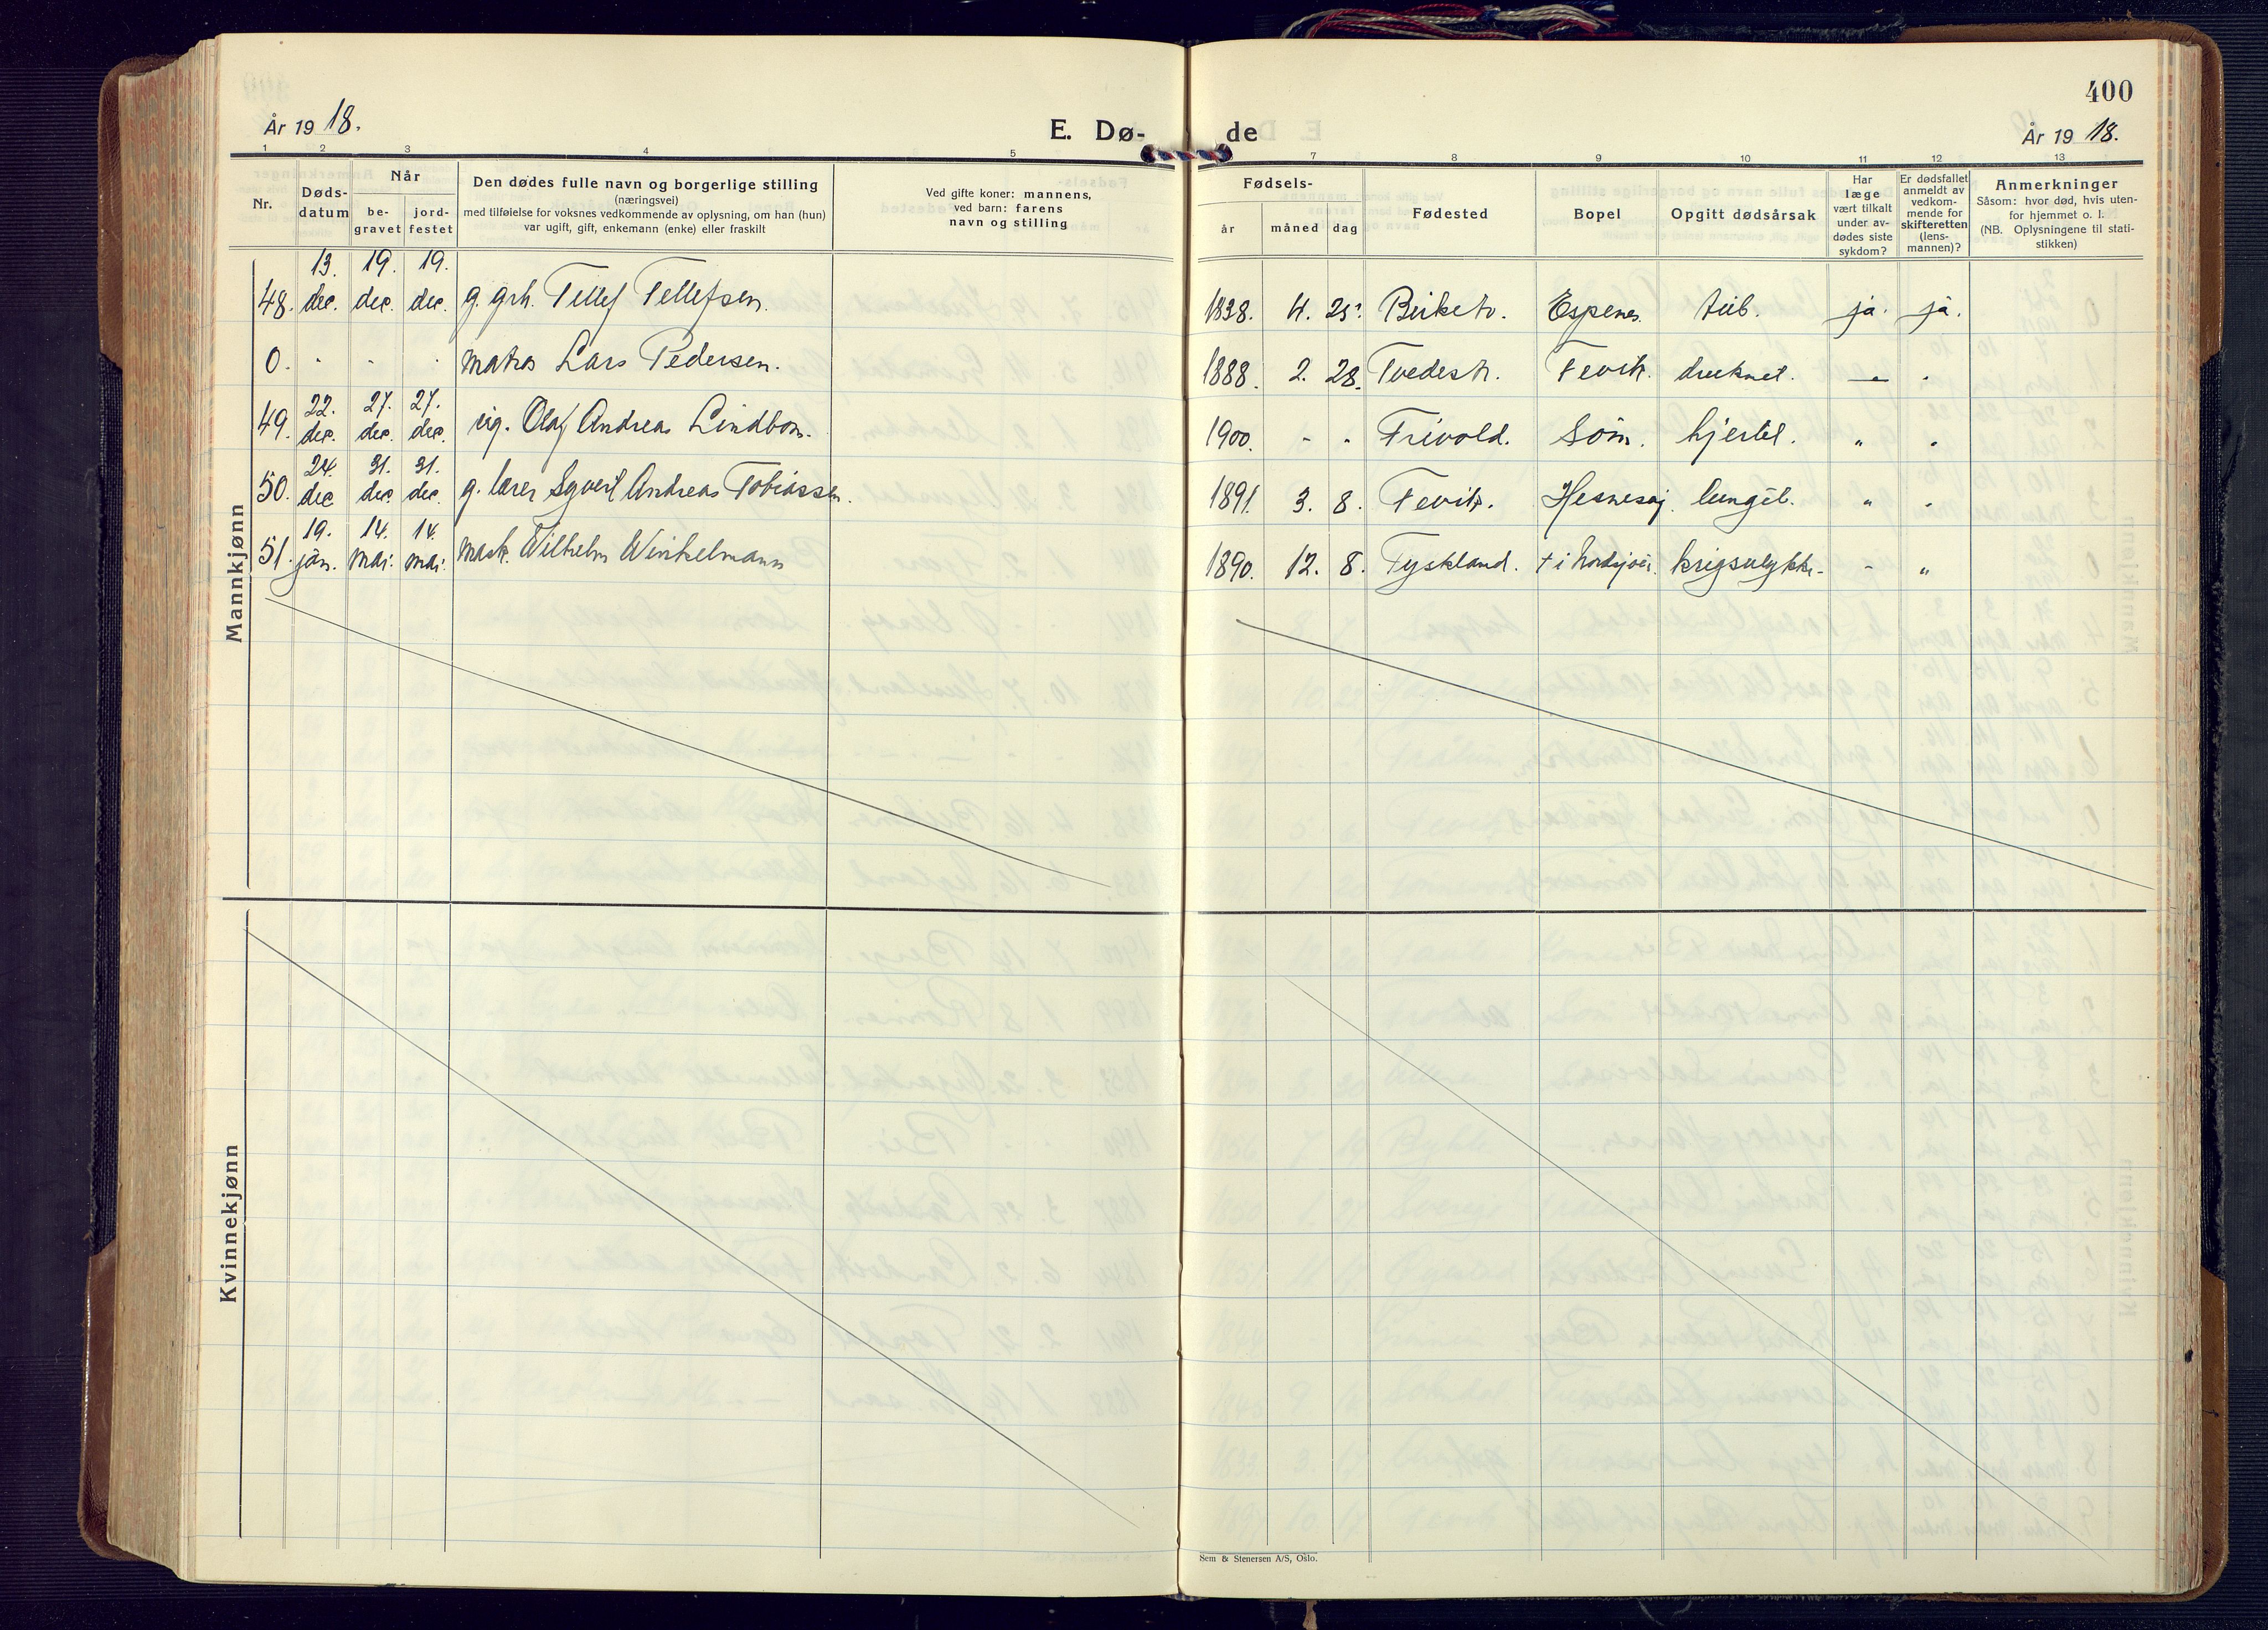 400
År 19 18.
E. Dø- de
År 19 18.
1 2 3 4 5 7 8 9 10 11 12 13
Nr.
Døds-
datum
Når
be-
gravet
jord-
festet
Den dødes fulle navn og borgerlige stilling
(næringsvei)
med tilføielse for voksnes vedkommende av oplysning, om han (hun)
var ugift, gift, enkemann (enke) eller fraskilt
Ved gifte koner: mannens,
ved barn: farens
navn og stilling
Fødsels-
år måned dag
Fødested
Bopel
Opgitt dødsårsak
Har
læge
vært tilkalt
under av-
dødes siste
sykdom?
Er dødsfallet
anmeldt av
vedkom-
mende for
skifteretten
(lens-
mannen)?
Anmerkninger
Såsom: hvor død, hvis uten-
for hjemmet o. l.
(NB. Oplysningene til stati-
stikken)
Mannkjønn
13. 19. 19.
48. dec. dec. dec. g. grh. Tellef Tellefsen. 1838. 4. 25. Birket. Espenes. tub. ja. ja.
0. " " " matros Lars Pedersen. 1888. 2. 28. Tvedestr. Fevik. druknet. — "
22. 27. 27.
49. dec. dec. dec. ug. Olaf Andreas Lindbom. 1900. - - Frivold. Søm. hjertel. " "
24. 31. 31.
50. dec dec dec. g. lærer Syvert Andreas Tobiassen. 1891. 3. 8. Fevik. Hesnesøj. lungeb. " "
19. 14. 14.
51. jan. mai. mai. mask. Wilhelm Winkelmann 1890. 12. 8. Tyskland. + i Nordsjøen. krigsulykke - "
Kvinnekjønn
Sem & Stenersen A/S, Oslo.